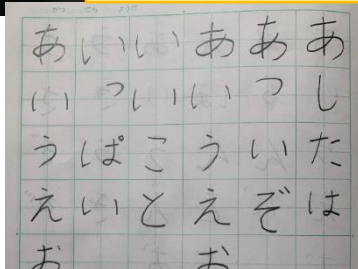 あしたは
あついぞ
あいうえお
いいこと
いっぱい
あいうえお